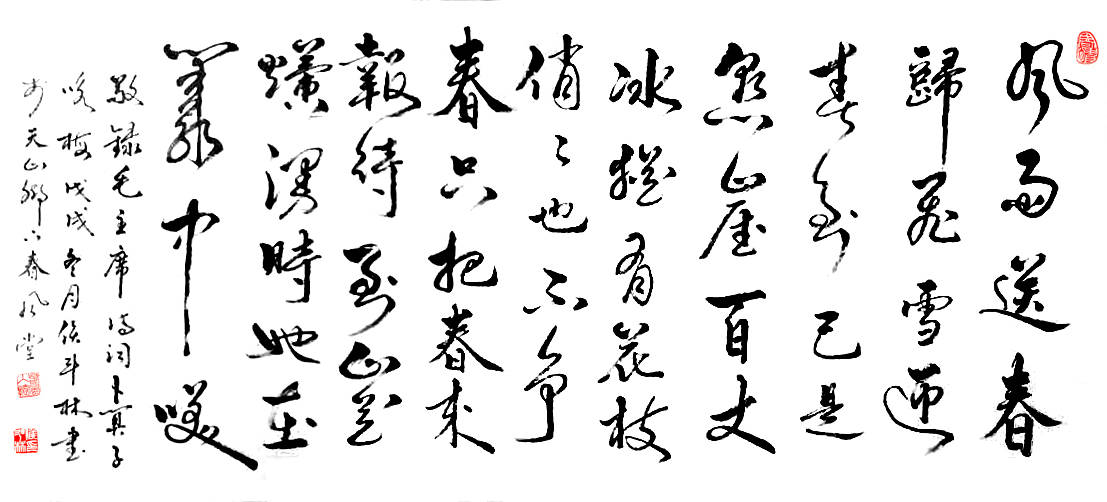 风雨送春
歸飛雪迎
春到已是
懸崖百丈
冰猶有花枝
俏〻也不争
春只把春来
報待到山花
爛漫時她在
叢中咲
敬録毛主席诗词卜算子
咏梅戊戌冬月侯斗林書
於天山鄉下春风堂